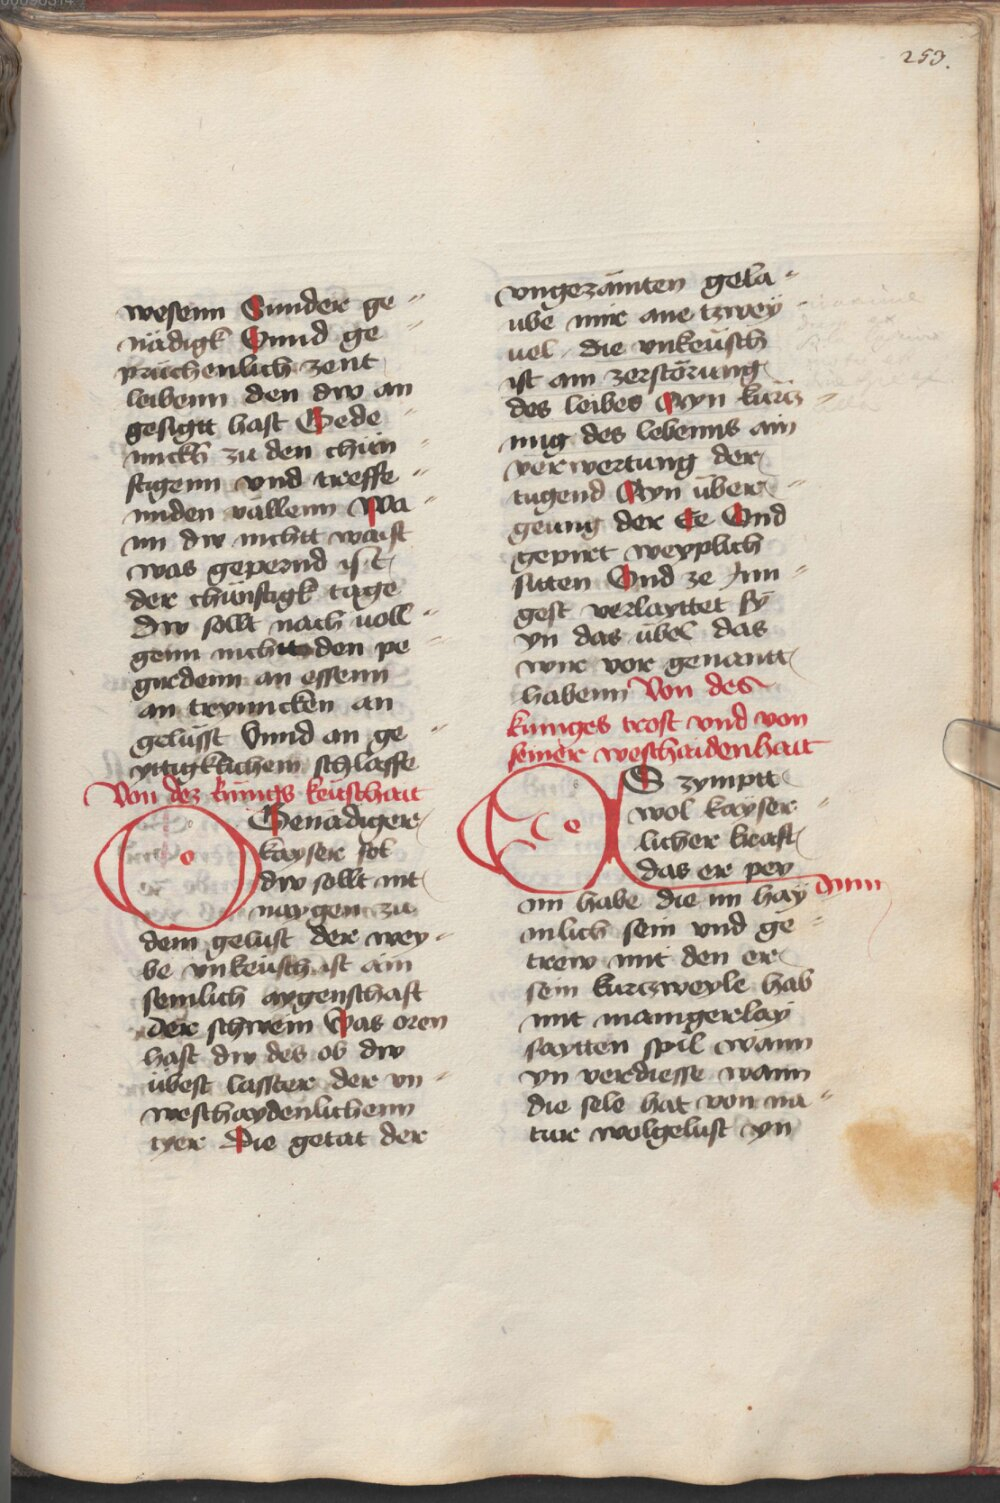 253.
wesenn Sunder ge
nädigk Vnnd ge
prüchenlich zent
leibenn den dw an
gesigtt hast Gede
nnckh zu den chün
ftigenn vnd treffe
nnden vällenn Wa
nn dw nichtt waist
was gepernd ist
der chünftigk tage
Dw sollt nach uoll
genn nichtt den pe
girdenn an essenn
an trynncken an
gelüsst Vnnd an ge
yttigklichem schlaffe
Von dez künigs keüschait
O Genadiger
kayser sol
dw sollt nit
naygen zu
dem gelust der wey
be vnkeüsch ist ain
semlich aygenschaft
der schwein Was oren
hast dw des ob dw
übest lasster der vn
weschaydenlichenn
tyer Die getat der
vngezämten gelä
ube mir ane tzwey
uel die vnkeüsch
ist am zerstörung
des leibes Ayn kürcz
nng des lebenns ain
verwertung der
tugend Ayn über
geung der Ee Vnd
gepirt weyplich
sitten Vnd ze Jnn
gest verlayttet sy
yn das übel das
wir vor genantt
habenn Von des
kuniges trost vnd von
seiner weschaidenhait
ES zymptt
wol kayser
licher kraft
das er pey
nn habe die im hay
mlich sein vnd ge
trew mit den er
sein kurczweyle hab
mit manigerlay
saytten spil wann
yn verdiesse wann
die sele hat von na
tur wolgelust yn